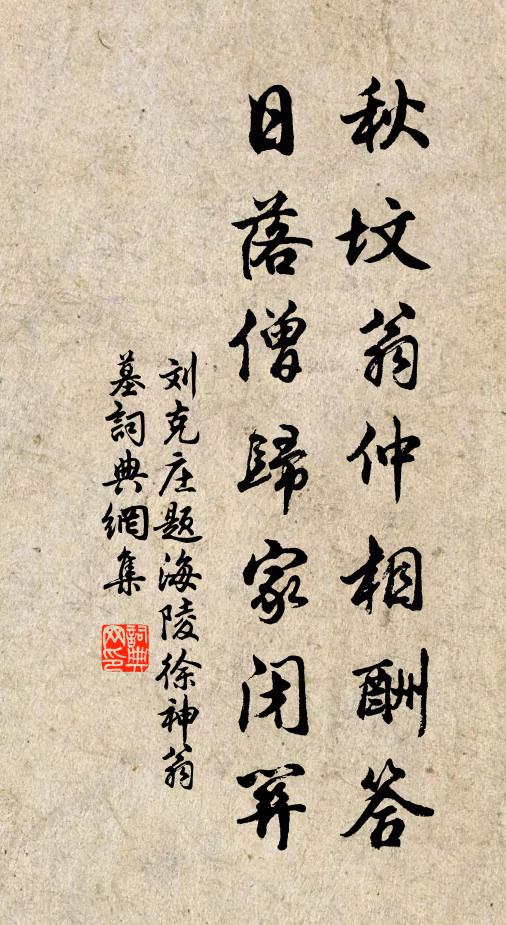 秋坟翁仲相酬答
日落僧歸家闭
刘克庄题海陵徐神翁
墓詞典網集
詞典
网印